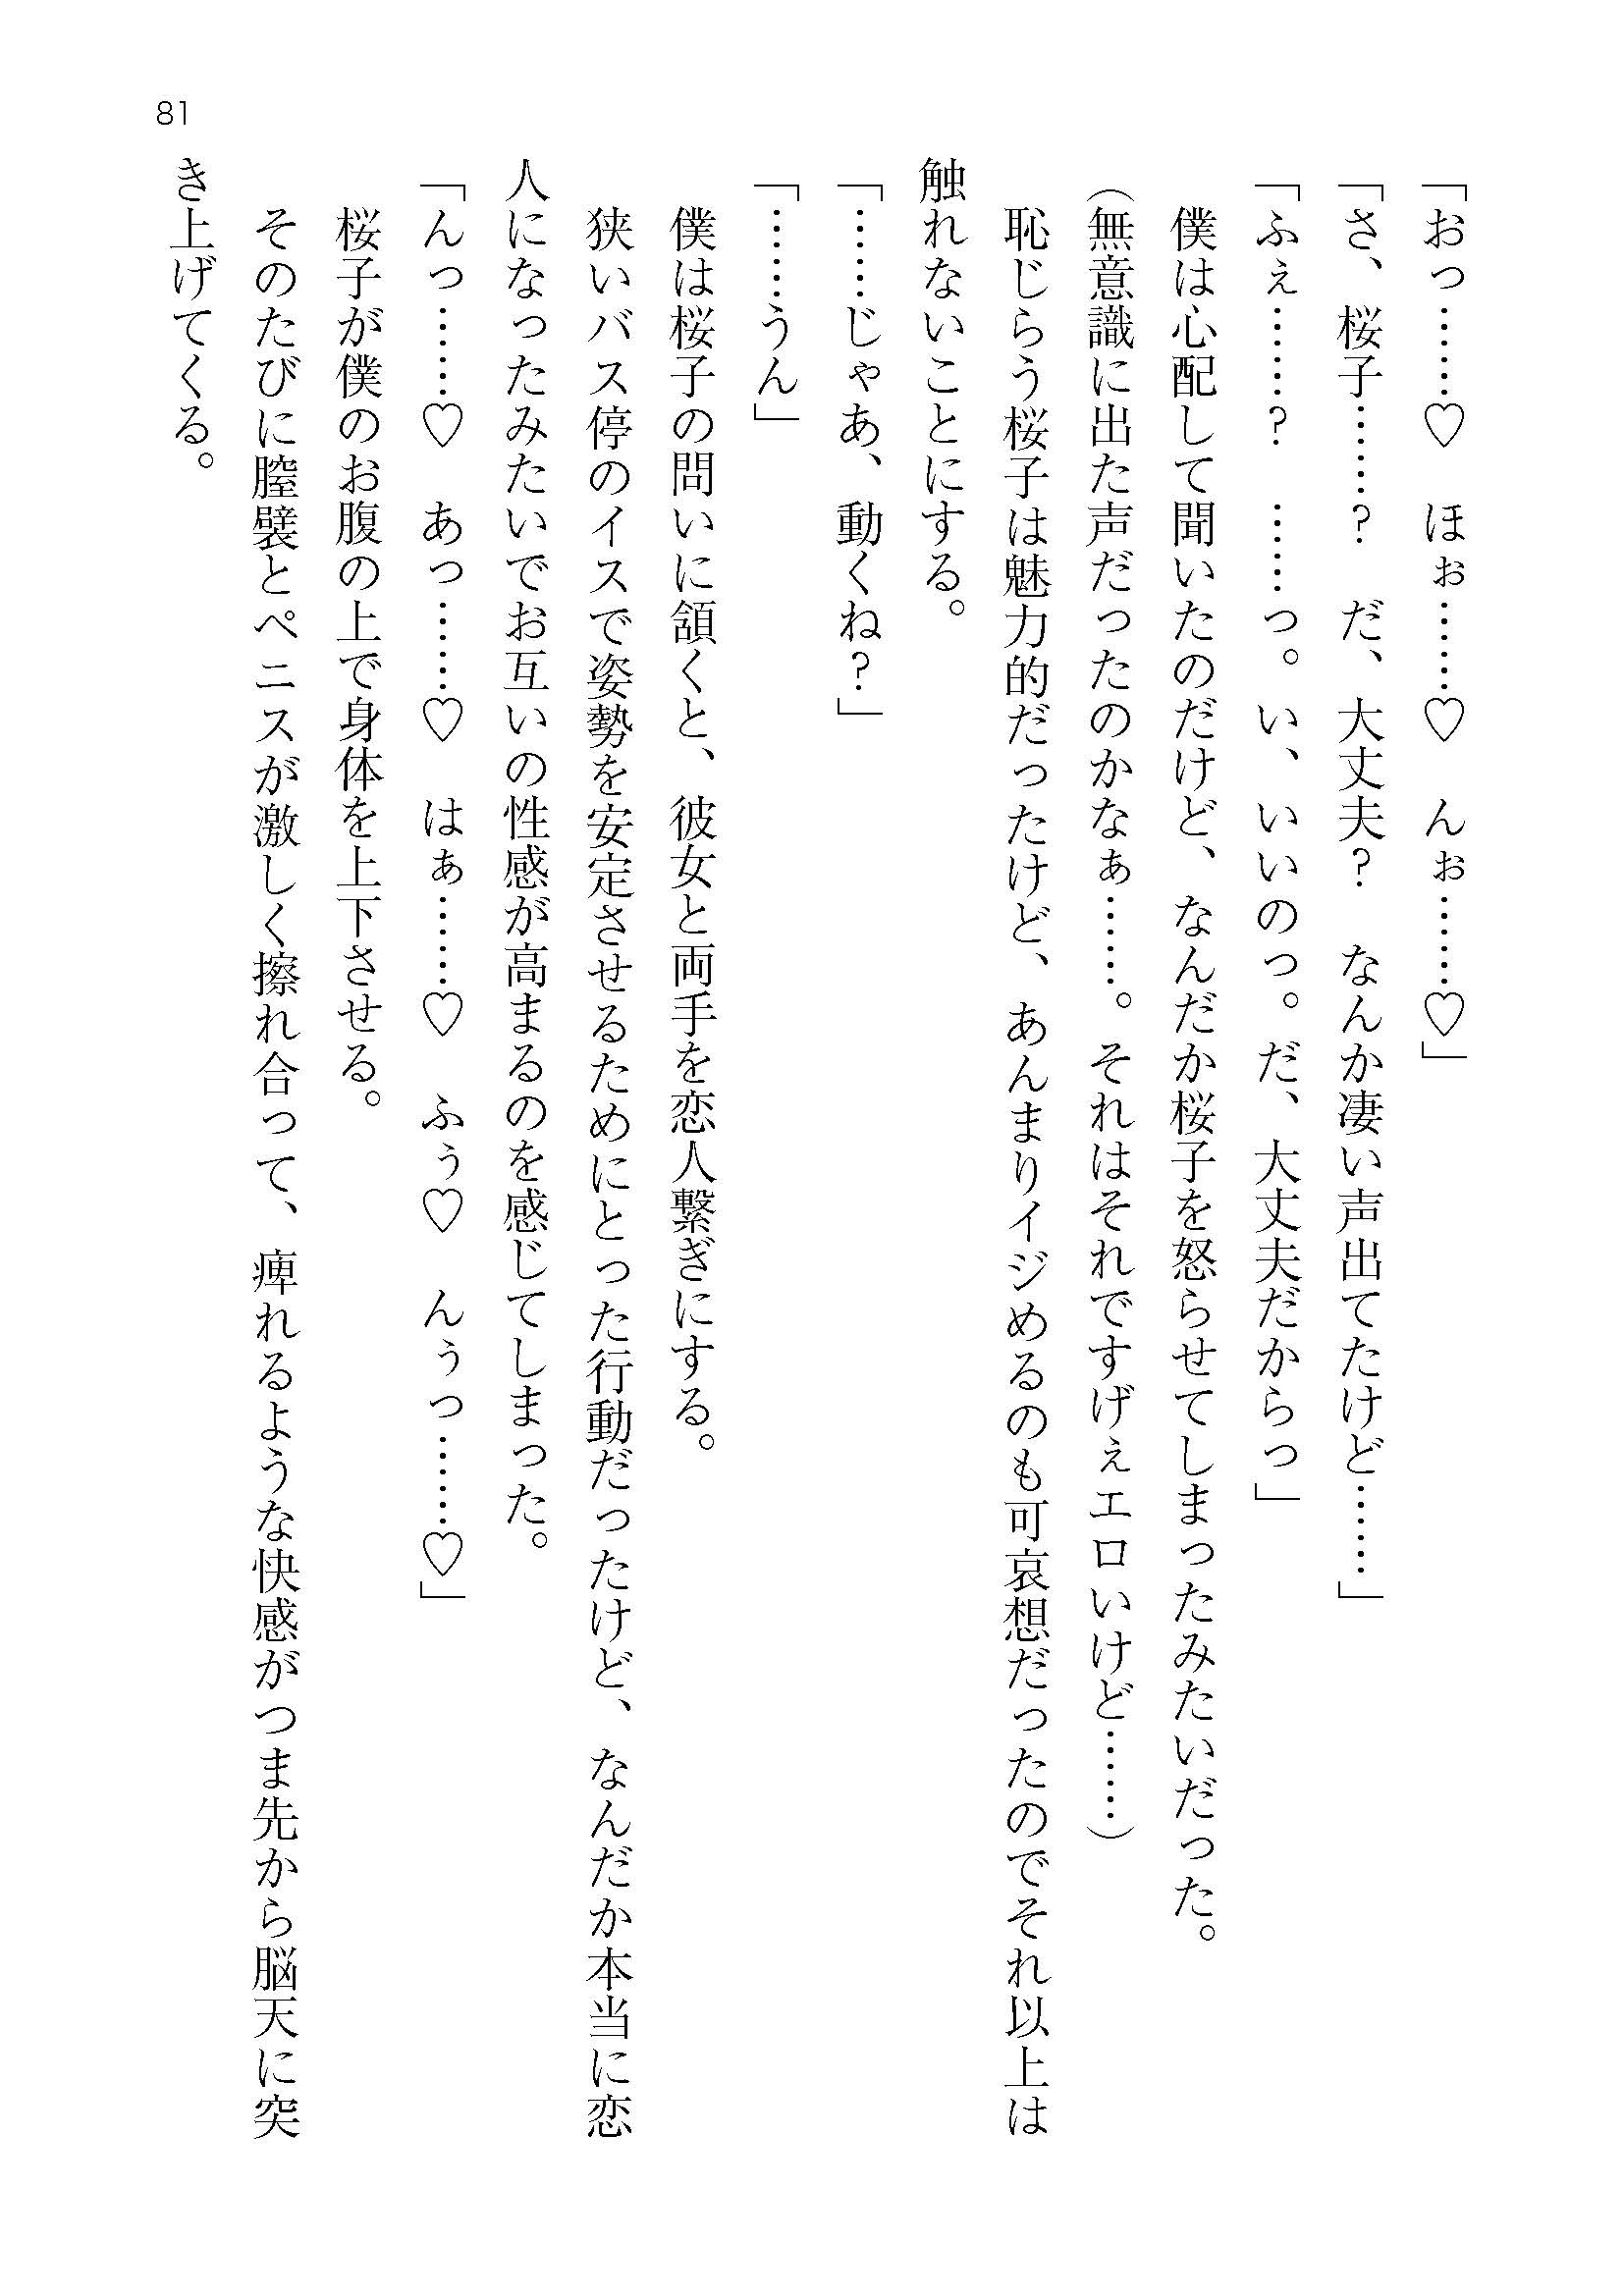 81
「おっ……♡　ほぉ……♡　んぉ……♡」
「さ、桜子……?　だ、大丈夫?　なんか凄い声出てたけど……」
「ふぇ……?　……っ。い、いいのっ。だ、大丈夫だからっ」
　僕は心配して聞いたのだけど、なんだか桜子を怒らせてしまったみたいだった。
（無意識に出た声だったのかなぁ……。それはそれですげぇエロいけど……）
　恥じらう桜子は魅力的だったけど、あんまりイジめるのも可哀想だったのでそれ以上は
触れないことにする。
「……じゃあ、動くね?」
「……うん」
　僕は桜子の問いに頷くと、彼女と両手を恋人繋ぎにする。
　狭いバス停のイスで姿勢を安定させるためにとった行動だったけど、なんだか本当に恋
人になったみたいでお互いの性感が高まるのを感じてしまった。
「んっ……♡　あっ……♡　はぁ……♡　ふぅ♡　んぅっ……♡」
　桜子が僕のお腹の上で身体を上下させる。
　そのたびに膣襞とペニスが激しく擦れ合って、痺れるような快感がつま先から脳天に突
き上げてくる。